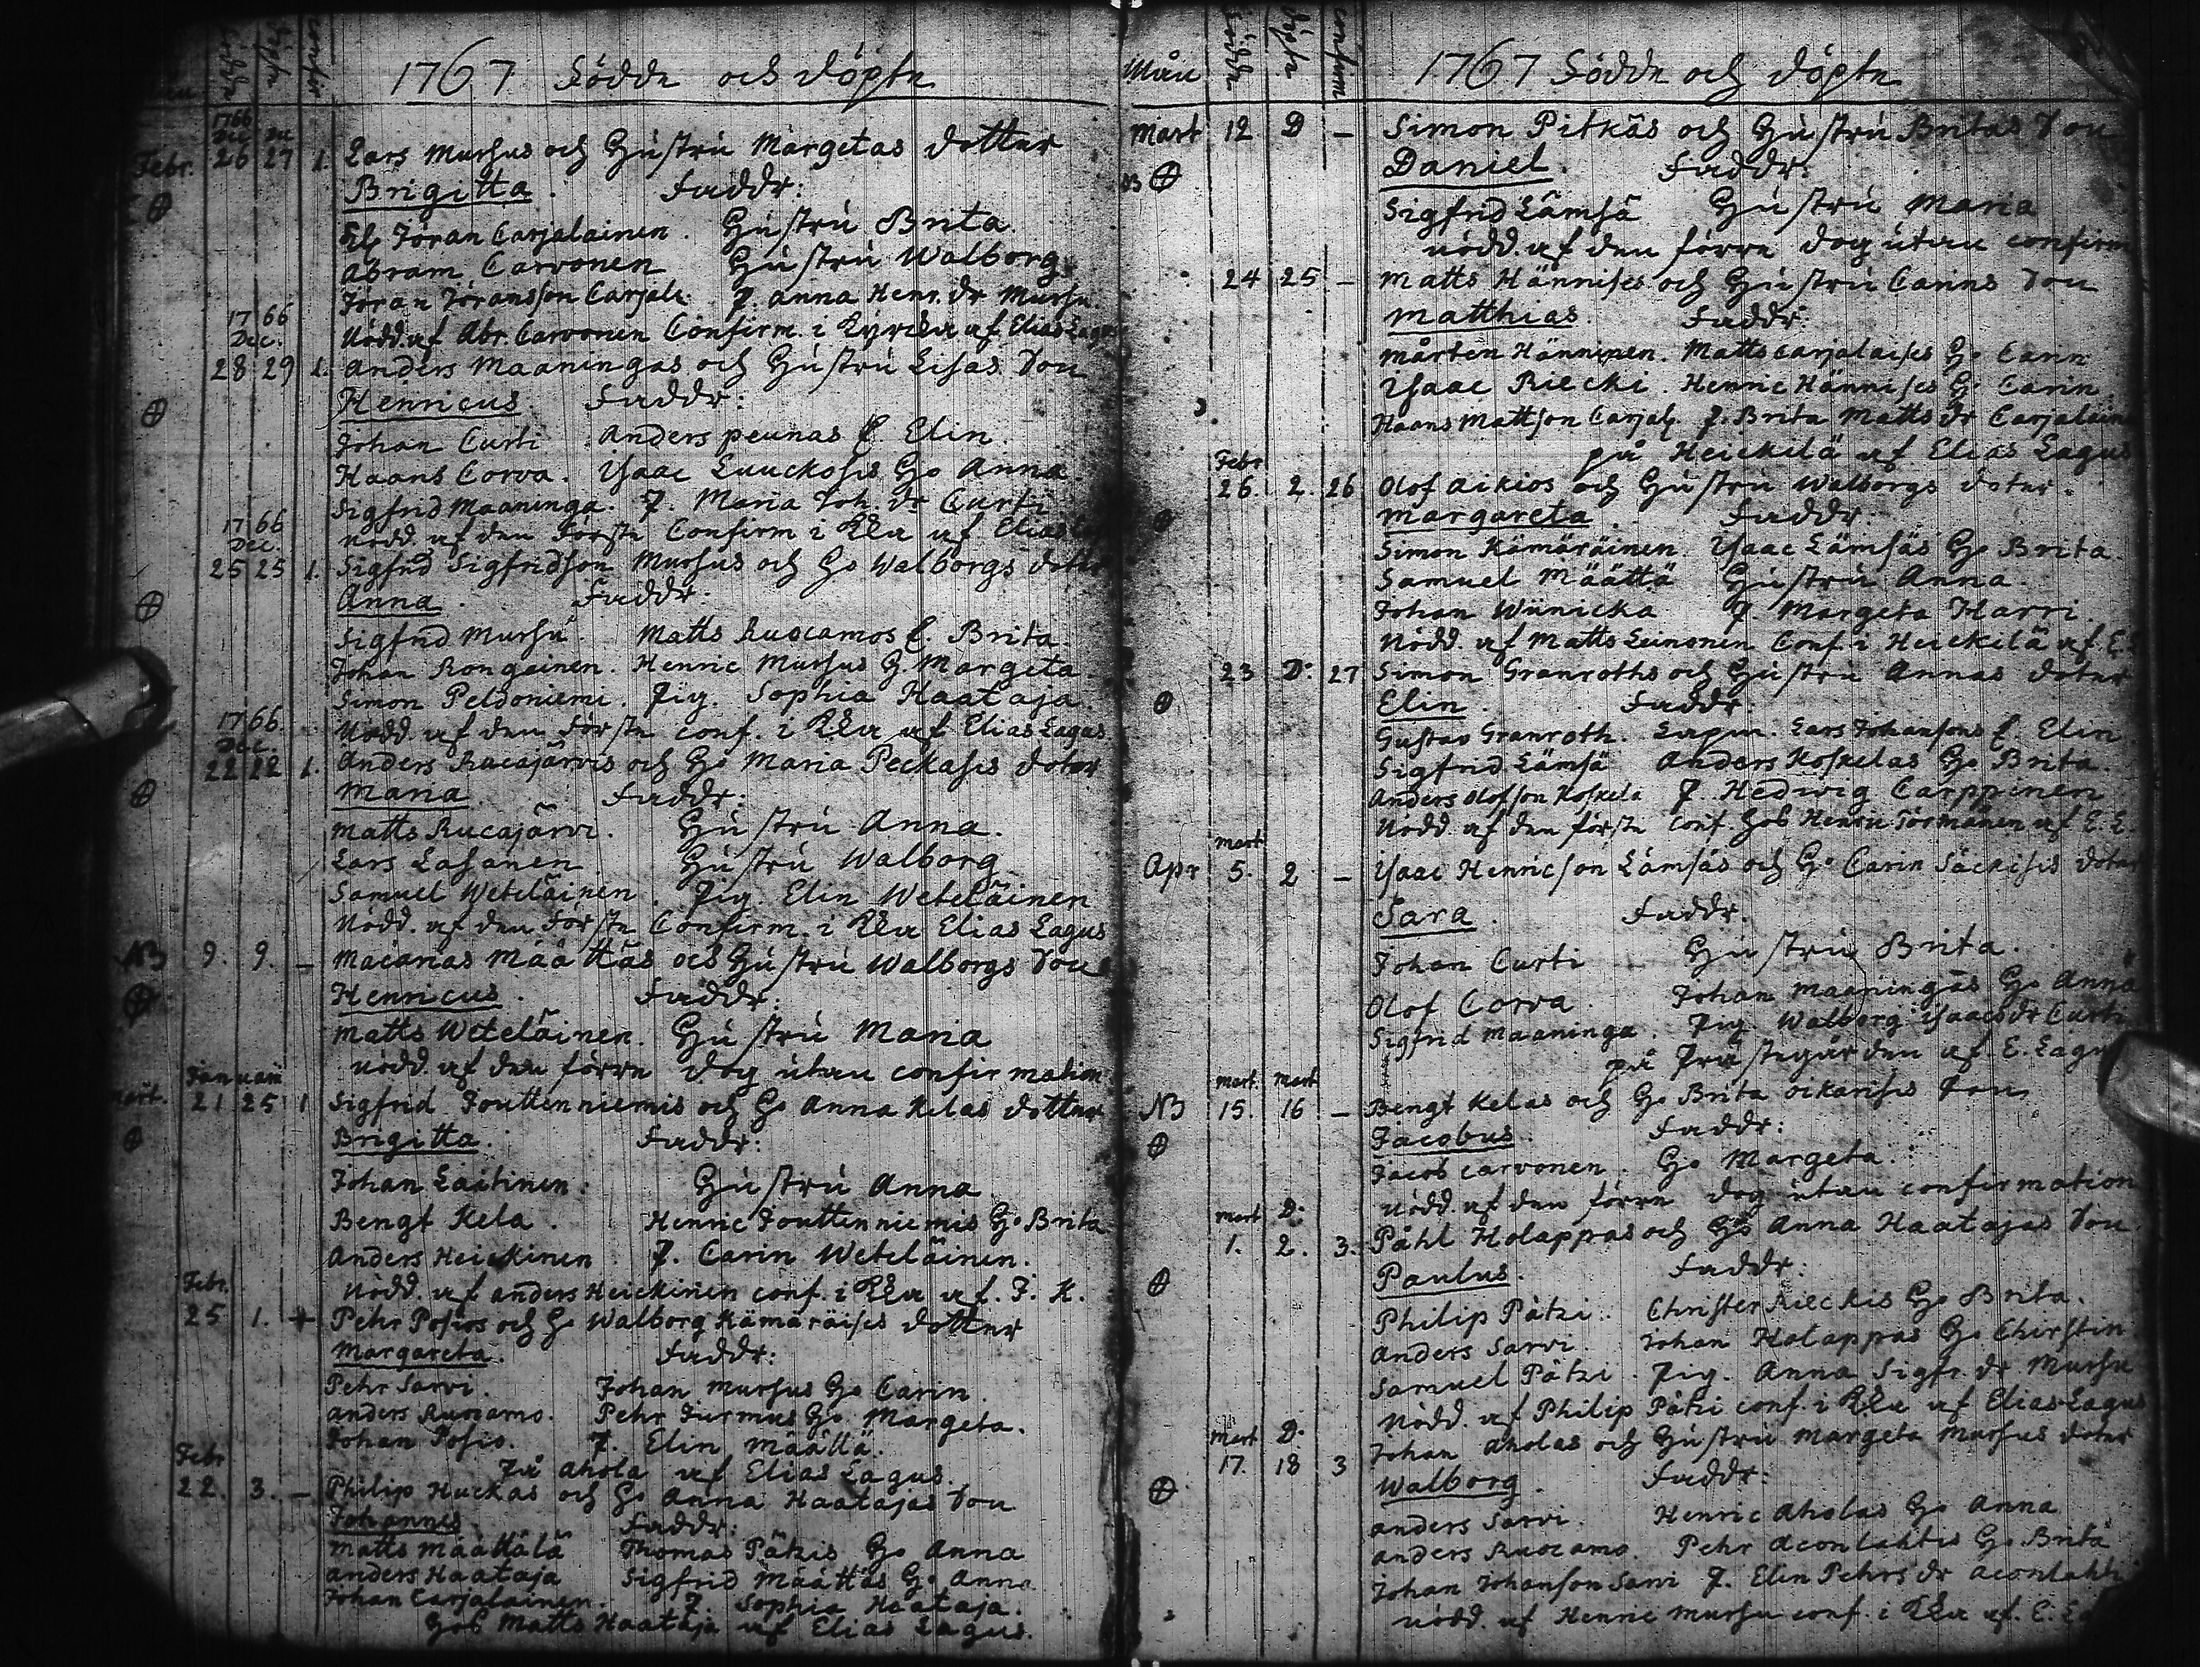 1767 Födde och döpte
1766
Dec. Dec.
Febr. 26 27 1. Lars Mursus och Hústrú Margetas dotter
Brigitta. Faddr:
Jöran Carjalainen. Hústrú Brita.
Abram Carvonen Hústrú Walborg
Jöran Jöransson Carjal. P. Anna Henr. dr Mursu.
1766
Dec.
Nödd. af Abr. Carvonen Confirm. i Kyrcka af Elias Lagus
28 29 1. Anders Maaningas och Hústrú Lisas Son
Henricus. Faddr:
Johan Curti Anders peunas E. Elin.
Haans Corva. Isaac Luuckosis Ho Anna
Sigfrid Maaninga. P. Maria Joh. dr Curti
1766
Dec.
Nödd. af den Förste Confirm i Kka af Elias
25 25 1. Sigfrid Sigfridson Mursus och Ho Walborgs doter
Anna. Faddr.
Sigfrid Mursu Matts Ruocamos E. Brita
Johan Rongainen. Henric Mursus H. Margeta
Simon Peldoniemi. Pig. Sophia Haataja.
1766.
Dec.
Nödd. af den Förste conf. i Kka af Elias Lagus
22 22 1. Anders Rucajärvis och Ho Maria Peckasis doter
Maria Faddr:
Matts Rucajärvi. Hústrú Anna.
Lars Lasanen Hústrú Walborg
Samuel Weteläinen. Pig. Elin Weteläinen
Nödd. af den Förste Confirm. i Kka Elias Lagus
NB 9. 9. – Macarias Määttäs och Hústrú Walborgs Son
Henricus. Faddr:
Matts Weteläinen. Hústrú Maria
Nödd. af den förre dog útan confirmation
Januari
Mart. 21 25 1 Sigfrid Jouttenniemis och Ho Anna Kelas dotter
Brigitta. Faddr:
Johan Laitinen. Hústrú Anna
Bengt Kela. Henric Jouttenniemis Ho Brita
Anders Heickinen P. Carin Weteläinen.
Febr.
Nödd. af anders Heickinen conf. i Kka af. J. K.
25 1. + Pehr Posios och Ho Walborg Kämäräises dotter
Margareta. Faddr:
Pehr Sarvi. Johan Mursus Ho Carin.
Anders Ruocamo. Pehr Jurmus Ho Margeta.
Johan Posio. P. Elin Määttä.
Febr
På Ahola af Elias Lagus.
22. 3. – Philip Huckas och Ho Anna Haatajas Son
Johannes Faddr:
Matts Määttälä Thomas Pätzis Ho Anna
Anders Haataja Sigfrid Määttäs Ho Anna
Johan Carjalainen. P. Sophia Haataja.
Hos Matts Haataja af Elias Lagus.
Mån Födde Döpte Confirm 1767 Födde och döpte
Mart 12 D – Simon Pitkäs och Hústrú Britas Son
NB Daniel. Faddr:
Sigfrid Lämsä Hústrú Maria
nödd. af den förre dog útan confirm
24 25 – Matts Hännises och Hústrú Carins Son
Matthias. Faddr:
Mårten Hänninen. Matts Carjalaises Ho Carin
Isaac Riecki. Henric Hännises Ho Carin
Haans Mattson Carjal. P. Brita Matts dr Carjalainen
på Heickilä af Elias Lagus
Febr
26. 2. 26 Olof Aikios och Hústrú Walborgs doter.
Margareta. Faddr.
Simon Kämäräinen. Isaac Lämsäs Ho Brita.
Samuel Määttä Hústrú Anna.
Johan Wiinicka P. Margeta Harri.
Nödd. af Matts Leinonen Conf. i Heickilä af E.
23 D. 27 Simon Granroths och Hústrú Annas doter
Elin. Faddr.
Gustav Granroth. Lars Johansons E. Elin
Sigfrid Lämsä Anders Koskelas Ho Brita.
Anders Olofson Koskela P. Hedwig Carppinen
Nödd. af den förste Conf. hos Henric Törmänen af E. L.
mart
Apr 5. 2 – Isaac Henricson Lämsäs och Ho Carin Säckises doter
Sara. Faddr.
Johan Curti Hústrú Brita.
Olof Corva. Johan Maaningas Ho Anna
Sigfrid Maaninga. Pig. Walborg Isaacsdr Curti
på Prästegården af E. Lagus
mart. mart
NB 15. 16 – Bengt Kelas och Ho Brita Oikarises Son
Jacobus. Faddr:
Jacob Carvonen. Ho Margeta.
nödd. af den förre dog útan confirmation
mart D.
1. 2. 3. Påhl Holappas och Ho Anna Haatajas Son.
Paulus. Faddr:
Philip Pätzi. Christer Rieckis Ho Brita.
Anders Sarvi. Johan Holappas Ho Chirstin
Samuel Pätzi. Pig. Anna Sigfr. dr Mursu
Nödd. af Philip Pätzi conf. i Kka af Elias Lagus
Mart D.
17. 18 3 Johan Aholas och Hústrú Margeta Mursus doter
Walborg. Faddr:
Anders Sarvi. Henric Aholas Ho Anna
Anders Ruocamo. Pehr Aconlahtis Ho Brita
Johan Johanson Sarvi P. Elin Pehrsdr Aconlahti
nödd. af Henric Mursu conf. i Kka af. E.